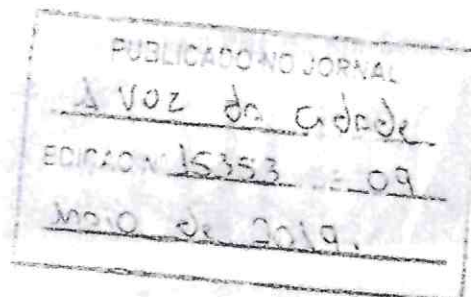 PUBLICADO NO JORNAL
A VOZ da Cidade
EDIÇÃO Nº 15353 DE 09
Maio de 2019.